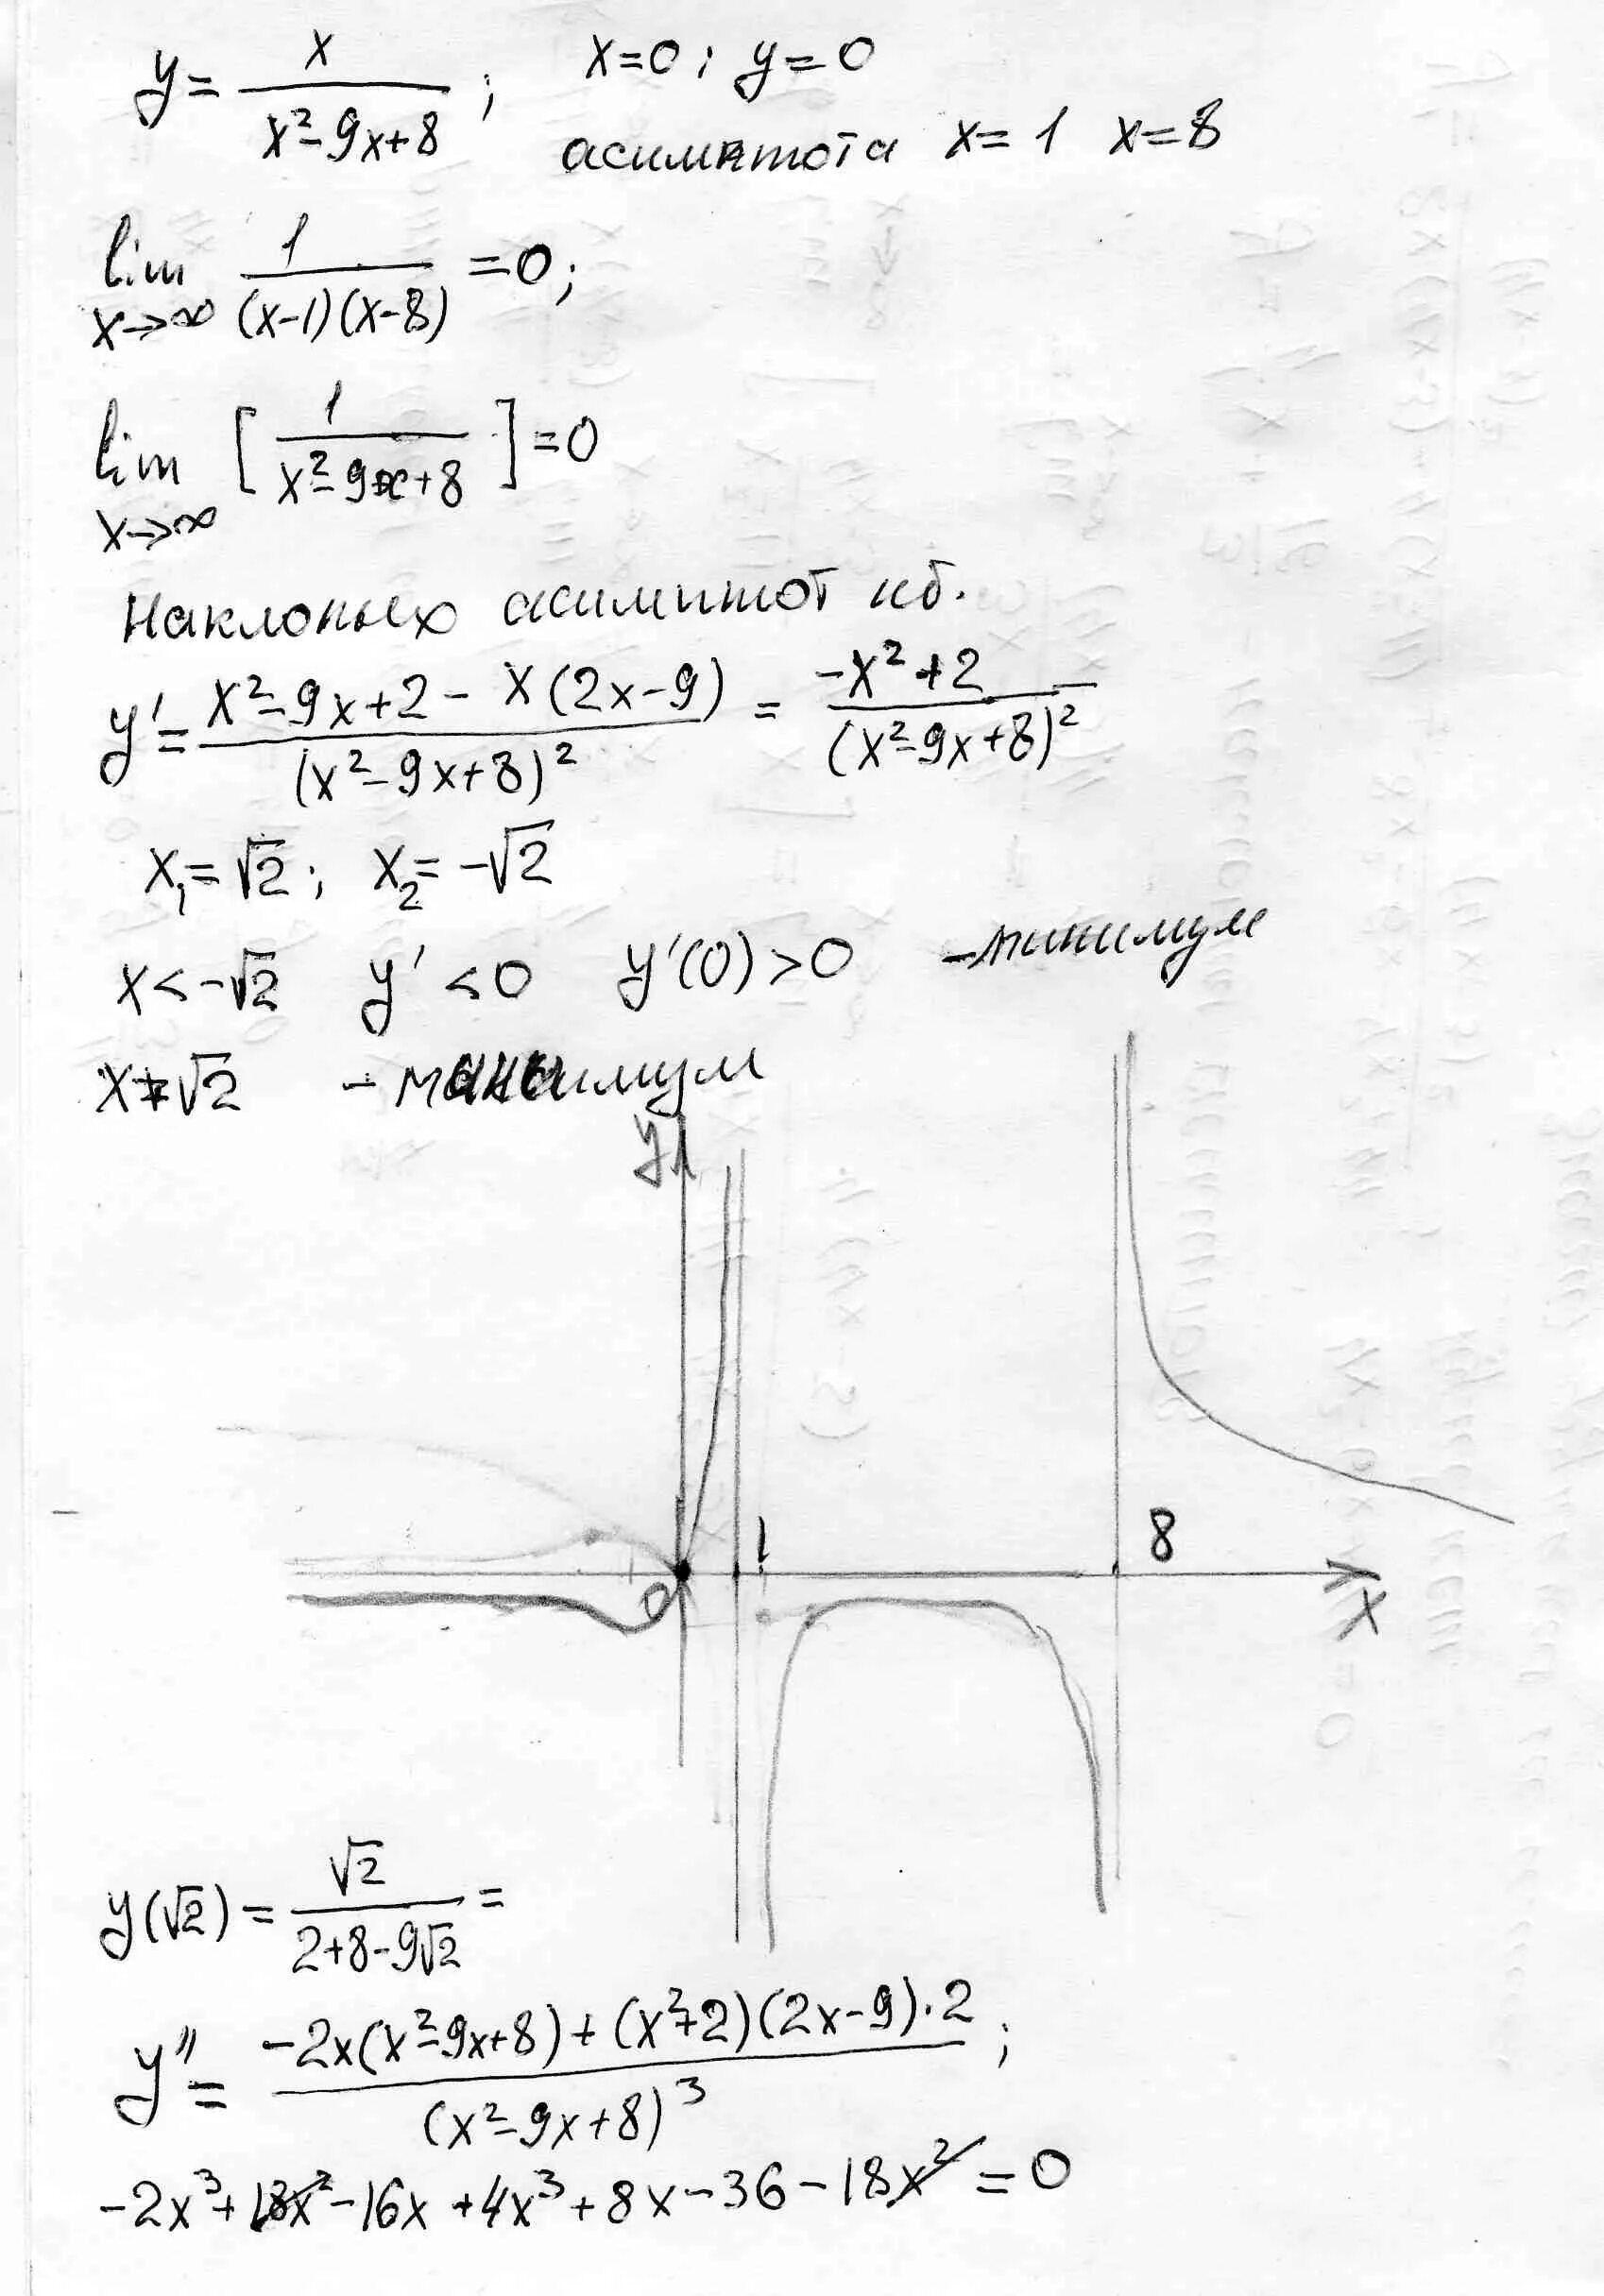 y = x / (x² - 9x + 8) ; x = 0 ; y = 0
асимптота x = 1 x = 8
lim x→∞ 1 / ((x-1)(x-8)) = 0 ;
lim x→∞ [ 1 / (x² - 9x + 8) ] = 0
Наклоных асимптот
y' = (x² - 9x + 2 - x(2x - 9)) / (x² - 9x + 8)² = (-x² + 2) / (x² - 9x + 8)²
x₁ = √2 ; x₂ = -√2
x < -√2 y' < 0 y'(0) > 0 - минимум
x √2 - максимум
y
0 1 8
x
y(√2) = √2 / (2 + 8 - 9√2) =
y'' = (-2x(x² - 9x + 8) + (x² + 2)(2x - 9)·2) / (x² - 9x + 8)³ ;
-2x³ + 18x² - 16x + 4x³ + 8x - 36 - 18x² = 0